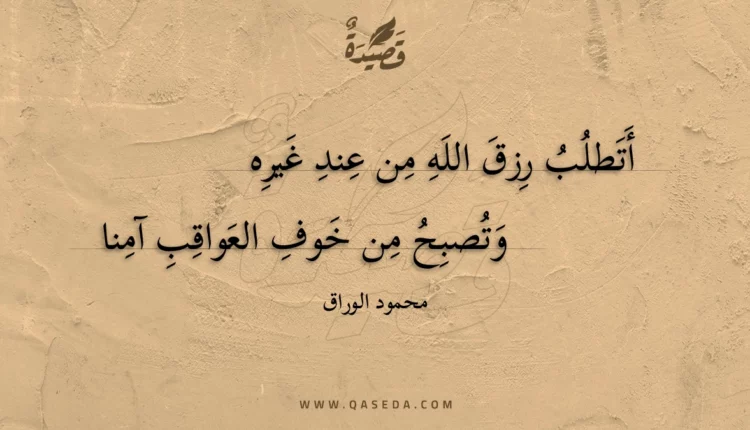 قَصِيدَةٌ
أَتَطلُبُ رِزقَ اللَهِ مِن عِندِ غَيرِه
وَتُصبِحُ مِن خَوفِ العَواقِبِ آمِنا
محمود الوراق
WWW.QASEDA.COM